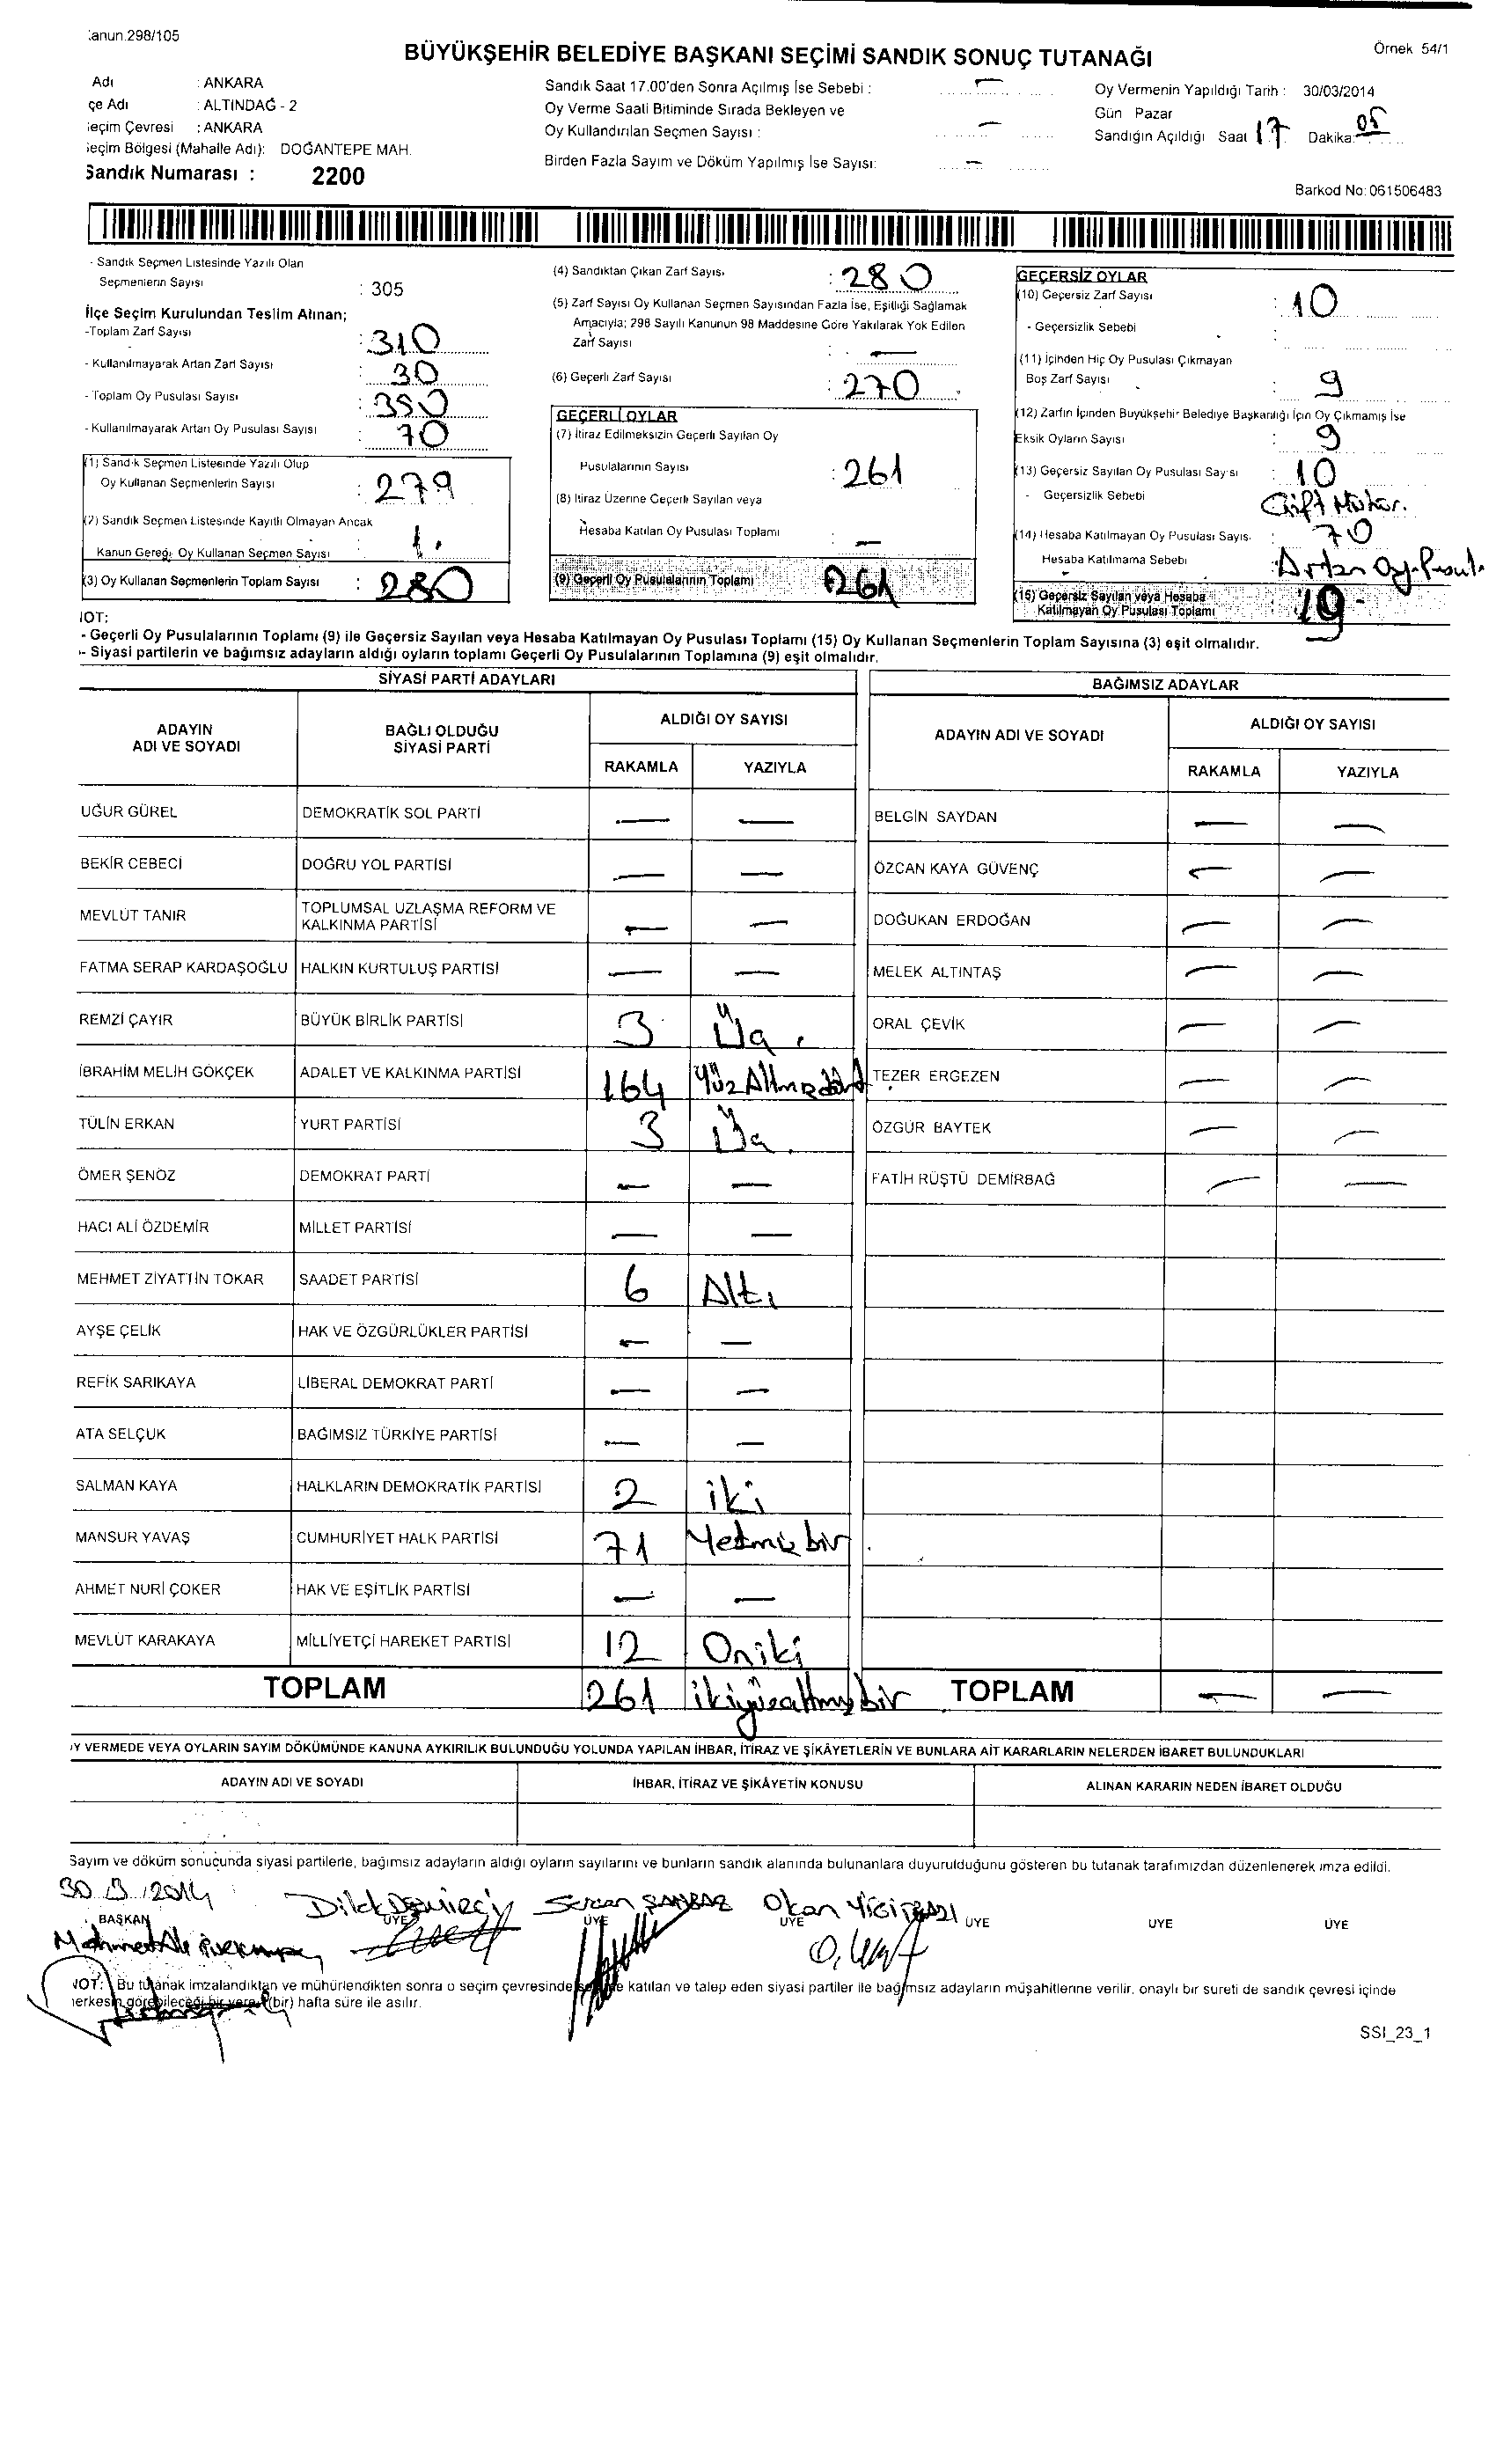 anun.298/105
BÜYÜKŞEHİR BELEDİYE BAŞKANI SEÇİMİ SANDIK SONUÇ TUTANAĞI
Örnek 54/1
Adı : ANKARA
çe Adı : ALTINDAĞ - 2
eçim Çevresi : ANKARA
eçim Bölgesi (Mahalle Adı): DOĞANTEPE MAH.
Sandık Numarası : 2200
Sandık Saat 17.00'den Sonra Açılmış İse Sebebi : —
Oy Verme Saati Bitiminde Sırada Bekleyen ve
Oy Kullandırılan Seçmen Sayısı : —
Birden Fazla Sayım ve Döküm Yapılmış İse Sayısı: —
Oy Vermenin Yapıldığı Tarih : 30/03/2014
Gün Pazar
Sandığın Açıldığı Saat 17 Dakika: 05
Barkod No:061506483
- Sandık Seçmen Listesinde Yazılı Olan
Seçmenlerin Sayısı : 305
İlçe Seçim Kurulundan Teslim Alınan;
-Toplam Zarf Sayısı : 310
- Kullanılmayarak Artan Zarf Sayısı : 30
- Toplam Oy Pusulası Sayısı : 350
- Kullanılmayarak Artan Oy Pusulası Sayısı : 70
(1) Sandık Seçmen Listesinde Yazılı Olup
Oy Kullanan Seçmenlerin Sayısı : 279
(2) Sandık Seçmen Listesinde Kayıtlı Olmayan Ancak
Kanun Gereği Oy Kullanan Seçmen Sayısı : 1.
(3) Oy Kullanan Seçmenlerin Toplam Sayısı : 280
(4) Sandıktan Çıkan Zarf Sayısı : 280
(5) Zarf Sayısı Oy Kullanan Seçmen Sayısından Fazla İse, Eşitliği Sağlamak
Amacıyla; 298 Sayılı Kanunun 98 Maddesine Göre Yakılarak Yok Edilen
Zarf Sayısı : —
(6) Geçerli Zarf Sayısı : 270
GEÇERLİ OYLAR
(7) İtiraz Edilmeksizin Geçerli Sayılan Oy
Pusulalarının Sayısı : 261
(8) İtiraz Üzerine Geçerli Sayılan veya
Hesaba Katılan Oy Pusulası Toplamı : —
(9) Geçerli Oy Pusulalarının Toplamı : 261
GEÇERSİZ OYLAR
(10) Geçersiz Zarf Sayısı : 10
- Geçersizlik Sebebi
(11) İçinden Hiç Oy Pusulası Çıkmayan
Boş Zarf Sayısı : 9
(12) Zarfın İçinden Büyükşehir Belediye Başkanlığı İçin Oy Çıkmamış İse
Eksik Oyların Sayısı : 9
(13) Geçersiz Sayılan Oy Pusulası Sayısı : 10
- Geçersizlik Sebebi Çift Mühür.
(14) Hesaba Katılmayan Oy Pusulası Sayıs. : 70
Hesaba Katılmama Sebebi : Artan Oy Pusul
(15) Geçersiz Sayılan veya Hesaba
Katılmayan Oy Pusulası Toplamı : 19
NOT:
- Geçerli Oy Pusulalarının Toplamı (9) ile Geçersiz Sayılan veya Hesaba Katılmayan Oy Pusulası Toplamı (15) Oy Kullanan Seçmenlerin Toplam Sayısına (3) eşit olmalıdır.
- Siyasi partilerin ve bağımsız adayların aldığı oyların toplamı Geçerli Oy Pusulalarının Toplamına (9) eşit olmalıdır.
SİYASİ PARTİ ADAYLARI
BAĞIMSIZ ADAYLAR
ADAYIN ADI VE SOYADI
BAĞLI OLDUĞU SİYASİ PARTİ
ALDIĞI OY SAYISI
RAKAMLA YAZIYLA
ADAYIN ADI VE SOYADI
ALDIĞI OY SAYISI
RAKAMLA YAZIYLA
UĞUR GÜREL DEMOKRATİK SOL PARTİ — — BELGİN SAYDAN — —
BEKİR CEBECİ DOĞRU YOL PARTİSİ — — ÖZCAN KAYA GÜVENÇ — —
MEVLÜT TANIR TOPLUMSAL UZLAŞMA REFORM VE KALKINMA PARTİSİ — — DOĞUKAN ERDOĞAN — —
FATMA SERAP KARDAŞOĞLU HALKIN KURTULUŞ PARTİSİ — — MELEK ALTINTAŞ — —
REMZİ ÇAYIR BÜYÜK BİRLİK PARTİSİ 3 Üç. ORAL ÇEVİK — —
İBRAHİM MELİH GÖKÇEK ADALET VE KALKINMA PARTİSİ 164 YüzAltmışdört TEZER ERGEZEN — —
TÜLİN ERKAN YURT PARTİSİ 3 Üç. ÖZGÜR BAYTEK — —
ÖMER ŞENÖZ DEMOKRAT PARTİ — — FATİH RÜŞTÜ DEMİRBAĞ — —
HACI ALİ ÖZDEMİR MİLLET PARTİSİ — —
MEHMET ZİYATTİN TOKAR SAADET PARTİSİ 6 Altı
AYŞE ÇELİK HAK VE ÖZGÜRLÜKLER PARTİSİ — —
REFİK SARIKAYA LİBERAL DEMOKRAT PARTİ — —
ATA SELÇUK BAĞIMSIZ TÜRKİYE PARTİSİ — —
SALMAN KAYA HALKLARIN DEMOKRATİK PARTİSİ 2 iki
MANSUR YAVAŞ CUMHURİYET HALK PARTİSİ 71 Yetmiş bir
AHMET NURİ ÇOKER HAK VE EŞİTLİK PARTİSİ — —
MEVLÜT KARAKAYA MİLLİYETÇİ HAREKET PARTİSİ 12 Oniki
TOPLAM 261 ikiyüzaltmışbir TOPLAM — —
Y VERMEDE VEYA OYLARIN SAYIM DÖKÜMÜNDE KANUNA AYKIRILIK BULUNDUĞU YOLUNDA YAPILAN İHBAR, İTİRAZ VE ŞİKÂYETLERİN VE BUNLARA AİT KARARLARIN NELERDEN İBARET BULUNDUKLARI
ADAYIN ADI VE SOYADI İHBAR, İTİRAZ VE ŞİKÂYETİN KONUSU ALINAN KARARIN NEDEN İBARET OLDUĞU
Sayım ve döküm sonucunda siyasi partilerle, bağımsız adayların aldığı oyların sayılarını ve bunların sandık alanında bulunanlara duyurulduğunu gösteren bu tutanak tarafımızdan düzenlenerek imza edildi.
30 3 2014 Dilek Sercan Okan
BAŞKAN ÜYE ÜYE ÜYE ÜYE ÜYE ÜYE
NOT: Bu tutanak imzalandıktan ve mühürlendikten sonra o seçim çevresinde katılan ve talep eden siyasi partiler ile bağımsız adayların müşahitlerine verilir, onaylı bir sureti de sandık çevresi içinde
herkesin görebileceği bir yere (bir) hafta süre ile asılır.
SSI_23_1